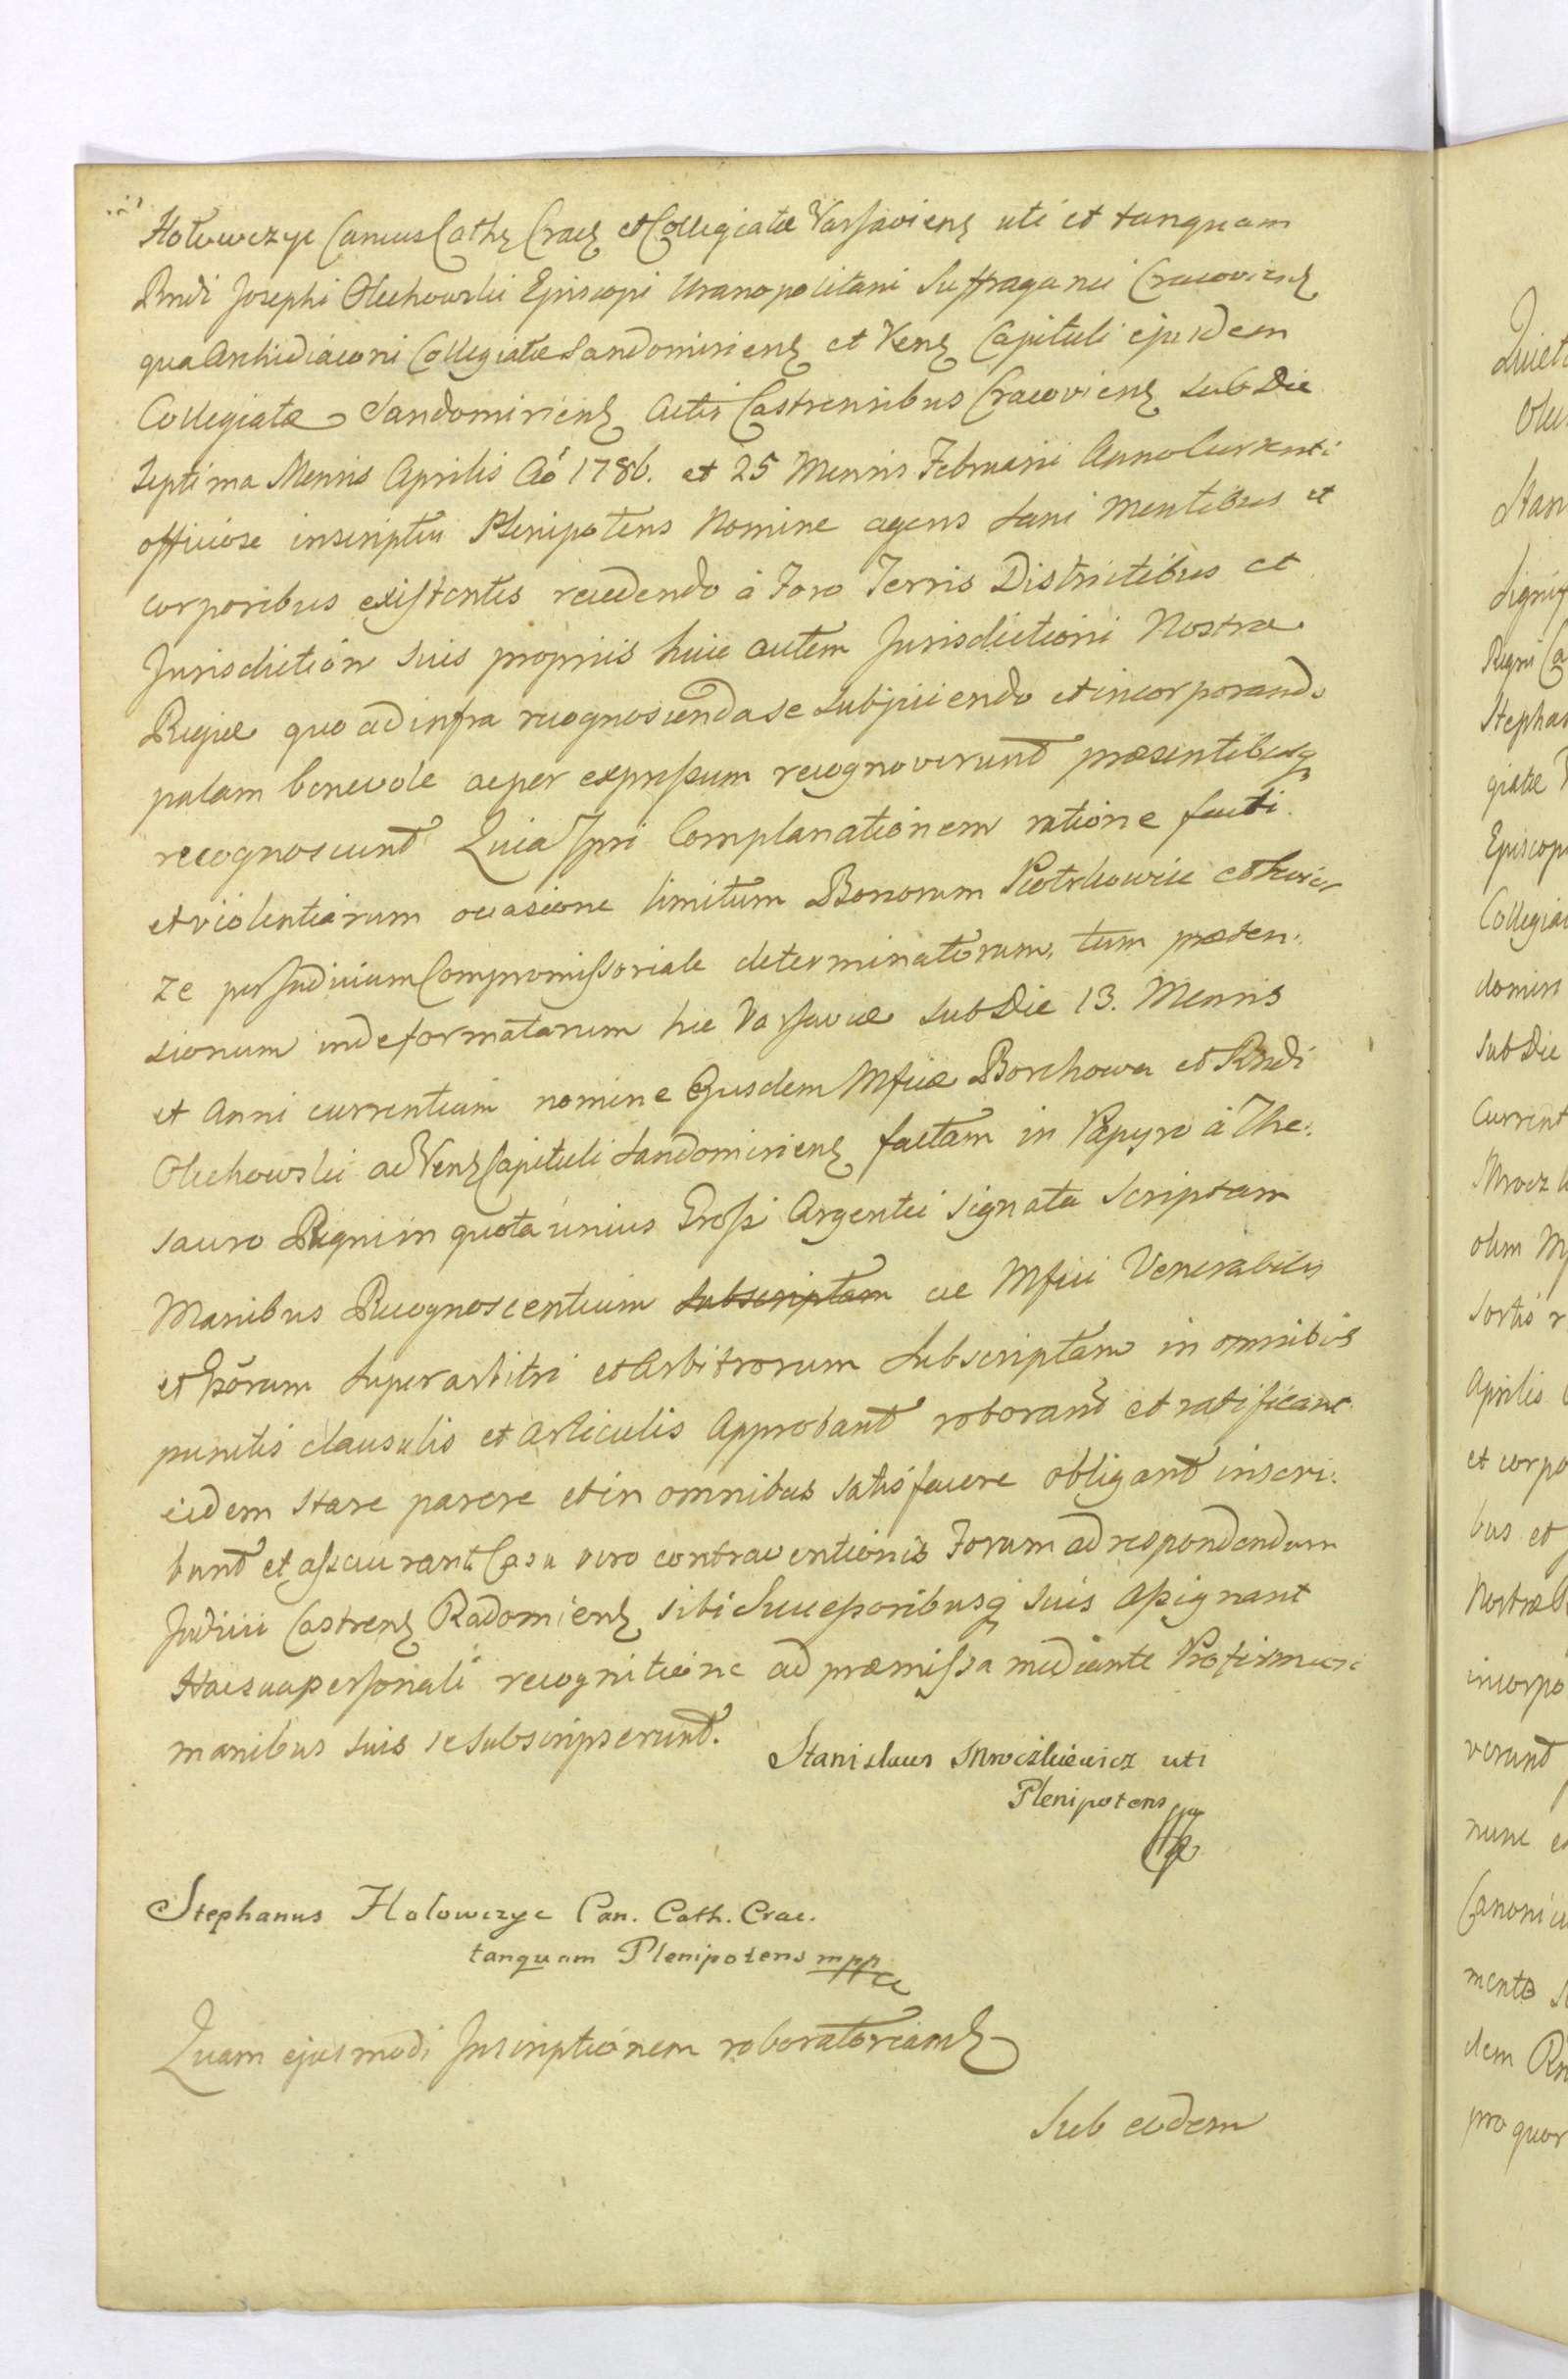 Hołowczyc Cancus Cathẹ Cracẹ et Collegiatæ Varsaviensẹ uti et tanquam
Rndi Josephi Olechowski Episcopi Uranopolitani Suffraganei Cracoviensẹ
qua Archidiaconi Collegiatæ Sandomiriensẹ et Venẹ Capituli ejusdem
Collegiatæ Sandomiriensẹ Actis Castrensibus Cracoviensẹ sub Die
Septima Mensis Aprilis Aō 1786. et 25 Mensis Februarii Anno Currenti
officiose inscriptus Plenipotens Nomine agens Sani mentibus et
corporibus existentes recedendo à Foro Terris Districtibus et
Jurisdiction suis propriis huic autem Jurisdictioni Nostræ
Regiæ quo ad infra recognoscenda se subjiciendo et incorporando
palam benevole ac per expressum recognoverunt præsentibusq
recognoscunt Quia Ipsi Complanationem ratione facti
et violentiarum occasione limitum Bonorum Piotrkowice et
ze per Judicium Compromissoriale determinatorum, tum præten:
sionum inde formatarum hic Varsaviæ sub Die 13. Mensis
et Anni currentium nomine Ejusdem Mficæ Borchowa et Rndi
Olechowski ac Venẹ Capituli Sandomiriensẹ factam in Papyro à The:
sauro Regni in quota unius Grossi Argentei signata Scriptam
Manibus Recognoscentium subscriptam ac Mfici Venerabilis
et Gsōrum Superarbitri et Arbitrorum Subscriptam in omnibus
punctis clausulis et articulis Approbant roborant et ratificant
eidem stare parere et in omnibus satisfacere obligant inscri:
bunt et assecurant Casu vero contraventionis Forum ad respondendum
Judicii Castrensẹ Radomiensẹ sibi Successoribusq suis assignant
Hac sua personali recognitione ad præmissa mediante Pro firmiori
manibus suis se subscripserunt.
Stanislaus Mroczkiewicz uti
Plenipotens
Stephanus Hołowczyc Can. Cath. Crac.
tanquam Plenipotens mpp
Quam ejusmodi Inscriptionem roboratoriamẹ
Sub eodem